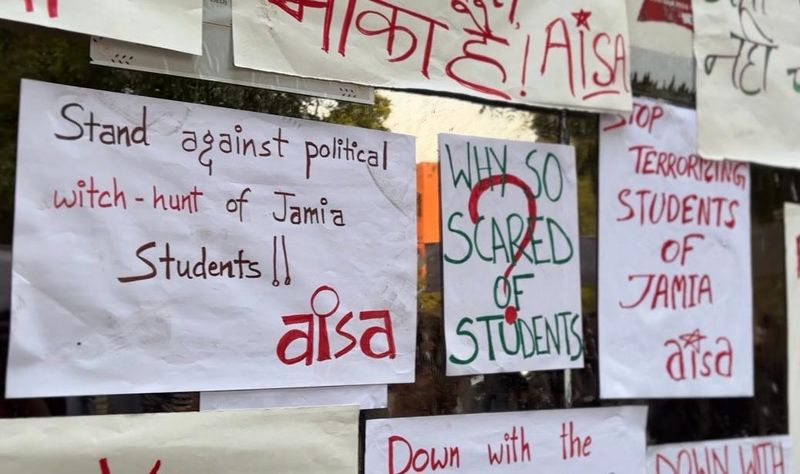 माका है! AISA
नहीं
Stand against political
witch-hunt of Jamia
Students!!
aisa
WHY SO
SCARED
OF
STUDENTS
?
STOP
TERRORIZING
STUDENTS
OF
JAMIA
aisa
Down with the
DOWN WITH